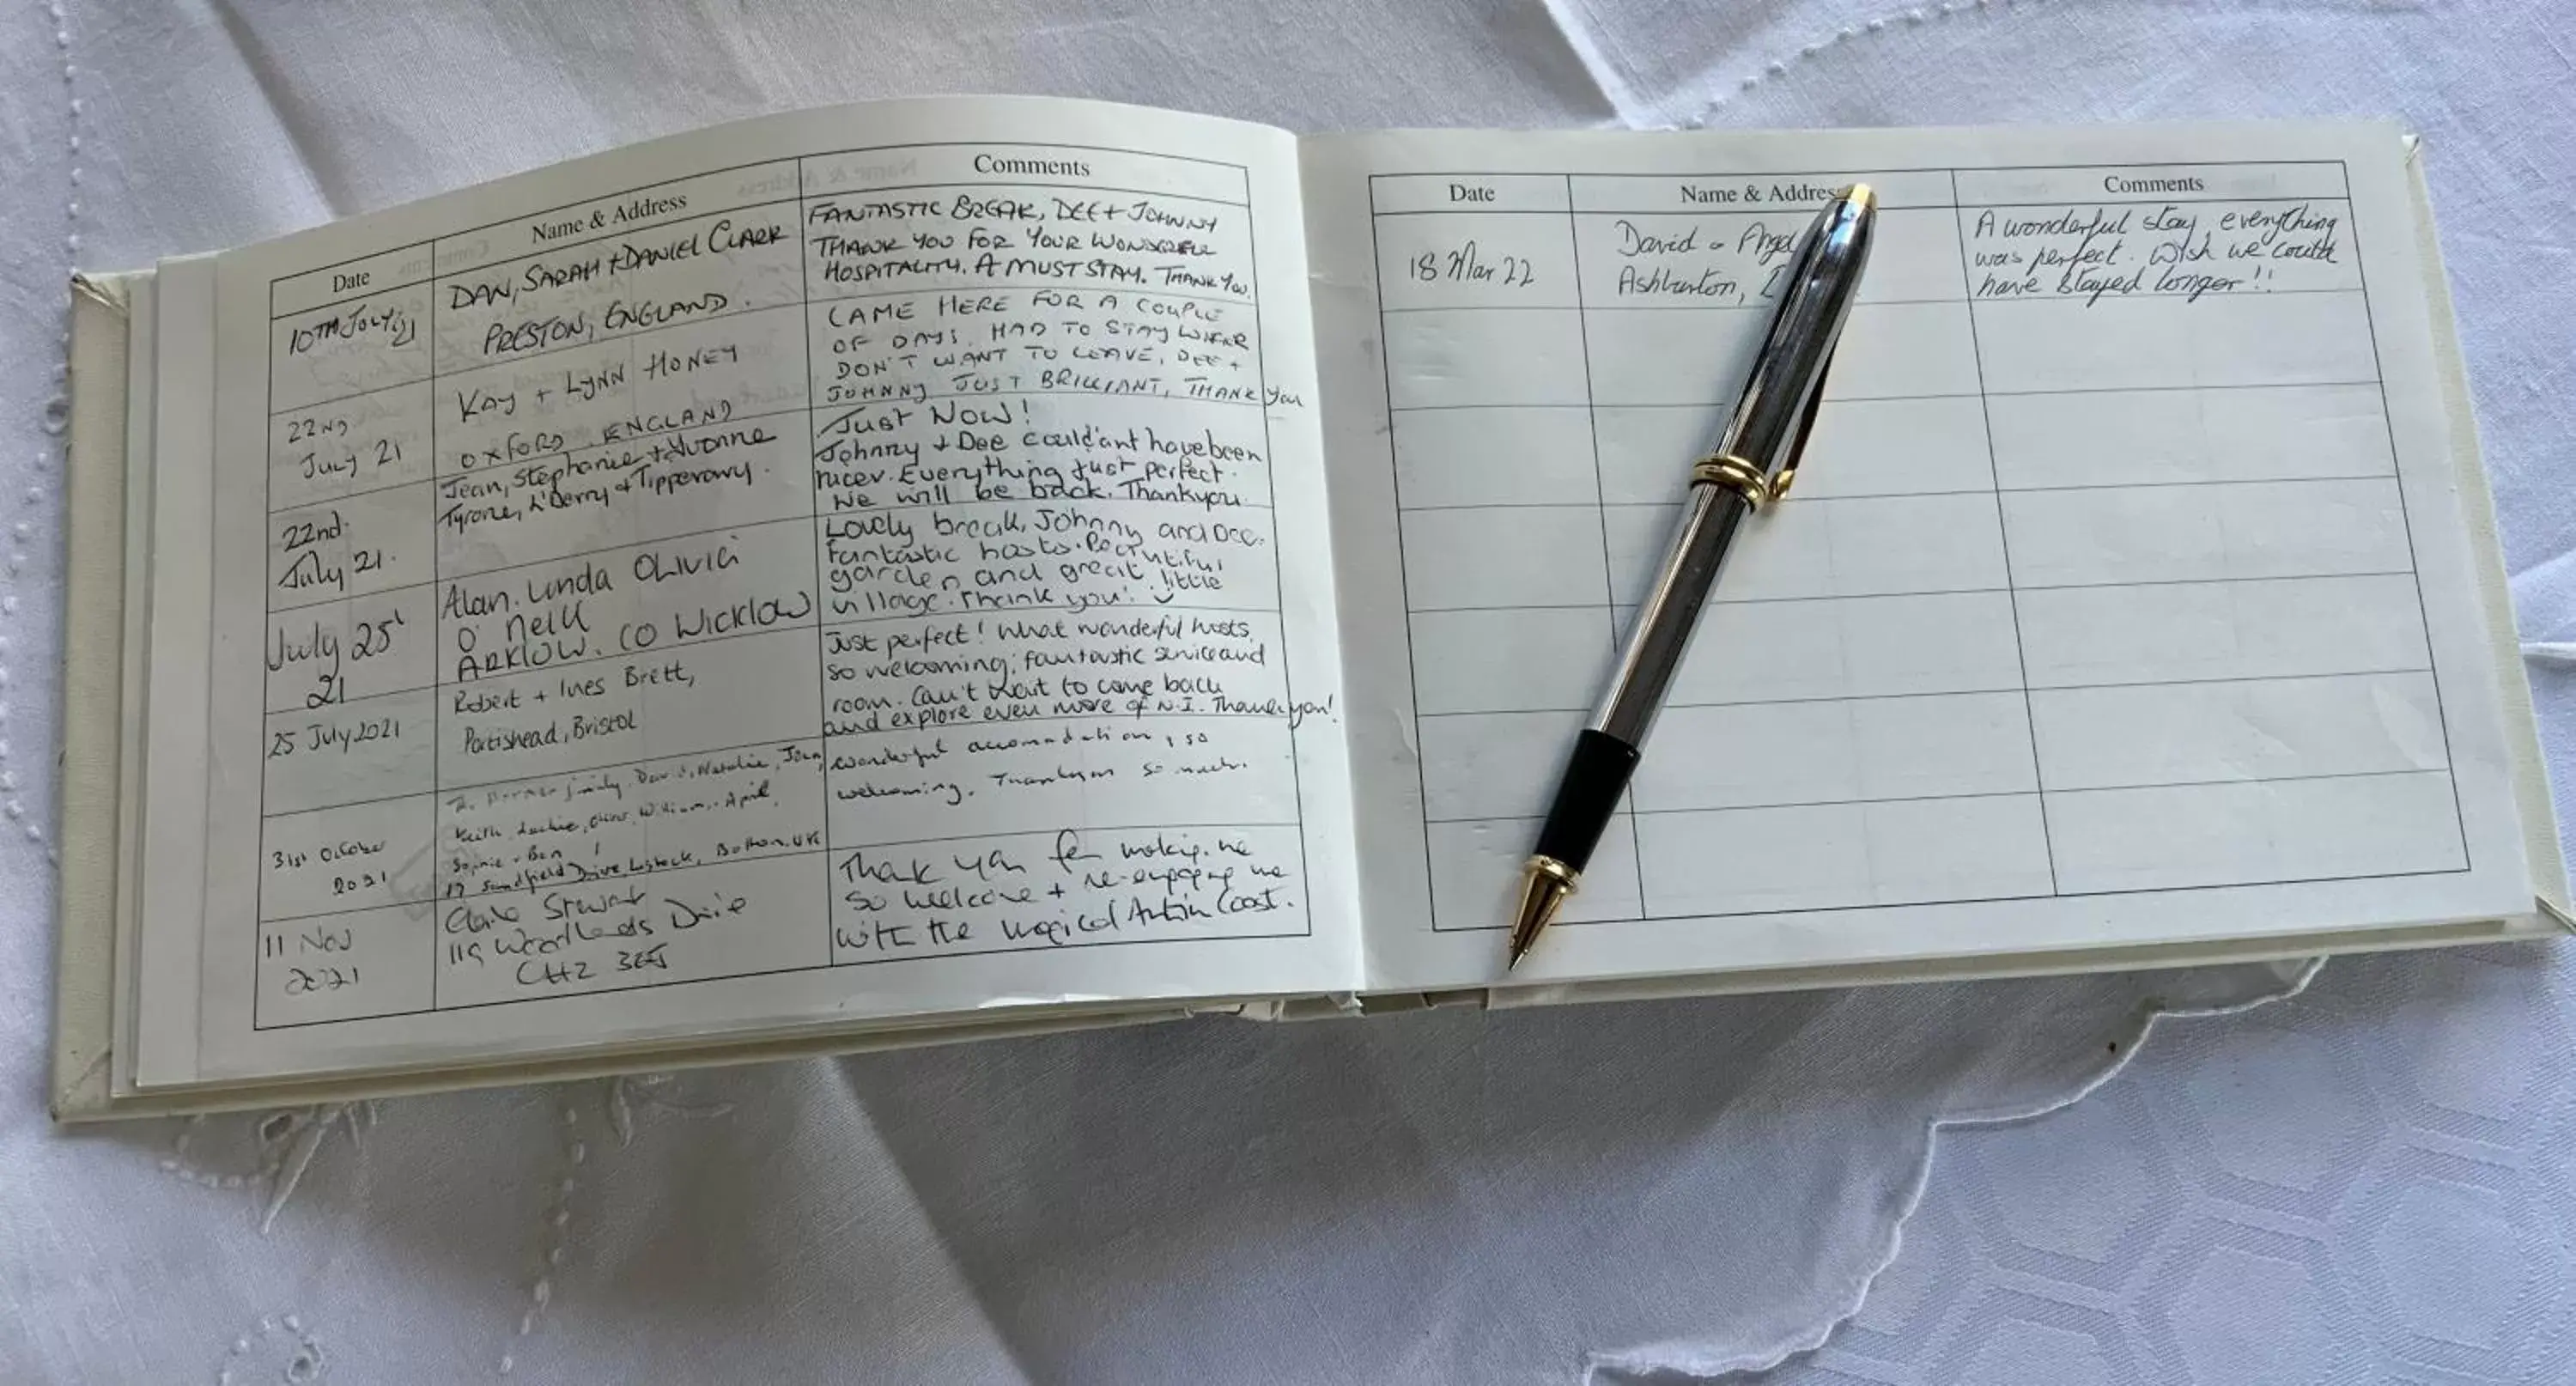 Date
Name & Address
Comments
10TH JULY 21
DAN, SARAH + DANIEL CLARK
PRESTON, ENGLAND.
FANTASTIC BREAK, DEE + JOHNNY
THANK YOU FOR YOUR WONDERFUL
HOSPITALITY. A MUST STAY. THANK YOU.
22ND
JULY 21
KAY + LYNN HONEY
OXFORD. ENGLAND
CAME HERE FOR A COUPLE
OF DAYS. HAD TO STAY LONGER
DON'T WANT TO LEAVE, DEE +
JOHNNY JUST BRILLIANT, THANK You
22nd.
July 21.
Jean, Stephanie + Yvonne
Tyrone, L'Derry + Tipperary.
Just Now!
Johnny + Dee could'ant have been
nicer. Everything just perfect.
We will be back. Thankyou.
July 25'
21
Alan. Linda OLIVIA
O'Neill
ARKLOW. CO WICKLOW
Lovely break, Johnny and Dee.
fantastic hosts. Beautiful
garden and great little
village. Thank you!
25 July 2021
Robert + Ines Brett,
Portishead, Bristol
Just perfect! What wonderful hosts,
so welcoming; fantastic service and
room. Can't wait to come back
and explore even more of N.I. Thank you!
31st October
2021
family. David, Natalie, John,
Keith, William, April,
Sophie + Ben
17 Sandfield Drive Lostock, Bolton. UK
wonderful accomodation, so
welcoming. Thankyou so much.
11 Nov
2021
Claire Stewart
119 Woodlands Drive
CH2 3EJ
Thank you for making me
so welcome + re-engaging me
with the magical Antrim Coast.
Date
Name & Address
Comments
18 Mar 22
David
Ashburton,
A wonderful stay, everything
was perfect. Wish we could
have stayed longer!!